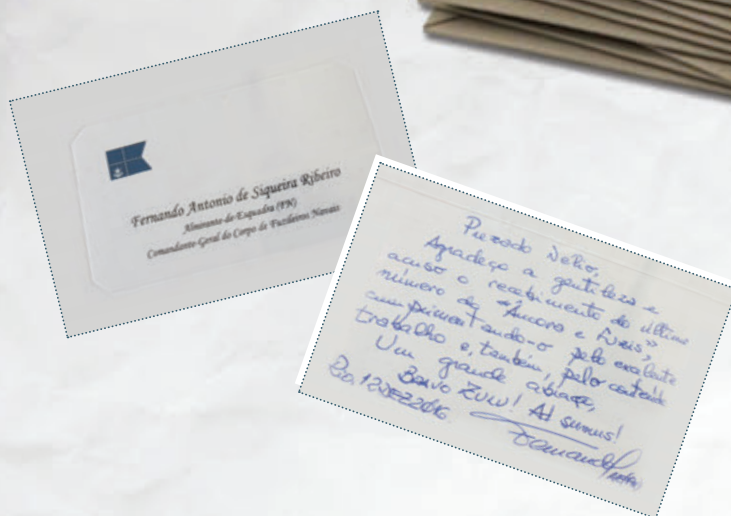 Fernando Antonio de Siqueira Ribeiro
Almirante-de-Esquadra (FN)
Comandante-Geral do Corpo de Fuzileiros Navais
Prezado Delio,
Agradeço a gentileza e
acuso o recebimento do último
número da "Âncora e Fuzis",
cumprimentando-o pelo excelente
trabalho e, também, pelo conteúdo
Um grande abraço,
Bravo Zulu! Ad sumus!
Rio, 12DEZ2016.
Fernando